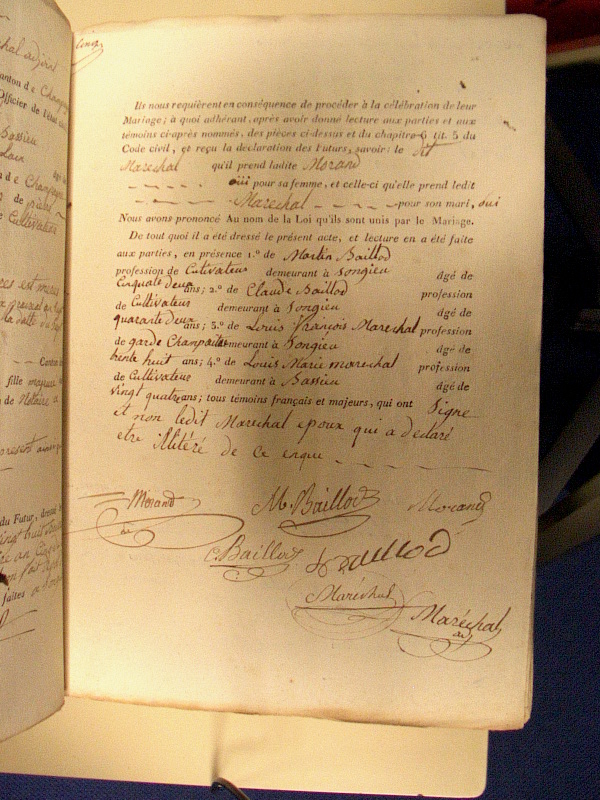 Ils nous requièrent en conséquence de procéder à la célébration de leur
Mariage; à quoi adhérant, après avoir donné lecture aux parties et aux
témoins ci-après nommés, des pièces ci-dessus et du chapitre 6, tit. 5 du
Code civil, et reçu la déclaration des Futurs, savoir: le dt
Marechal qu'il prend ladite Morand
oui pour sa femme, et celle-ci qu'elle prend ledit
Marechal pour son mari, oui
Nous avons prononcé Au nom de la Loi qu'ils sont unis par le Mariage.
De tout quoi il a été dressé le présent acte, et lecture en a été faite
aux parties, en présence 1.º de Martin Baillod
profession de Cutivateur demeurant à Songieu âgé de
Cinquate deux ans; 2.º de Claude Baillod profession
de Cultivateur demeurant à Songieu âgé de
quarante deux ans; 3.º de Louis françois Marechal profession
de garde Champaitre demeurant à Songieu âgé de
trente huit ans; 4.º de Louis Marie marechal profession
de Cultivateur demeurant à Bassieu âgé de
vingt quatre ans; tous témoins français et majeurs, qui ont Signe
et non ledit Marechal epoux qui a declaré
etre illitéré de ce enqui
Morand M. Baillod Morand
C. Baillod Baillod
Maréchal
Maréchal
hal adjoint
canton de Champagne
Officier de l'état
Bassieu
Lain
de Champagne
Cultivateur
fille majeure
de Notaire
présent
du Futur,
vingt huit
faites a